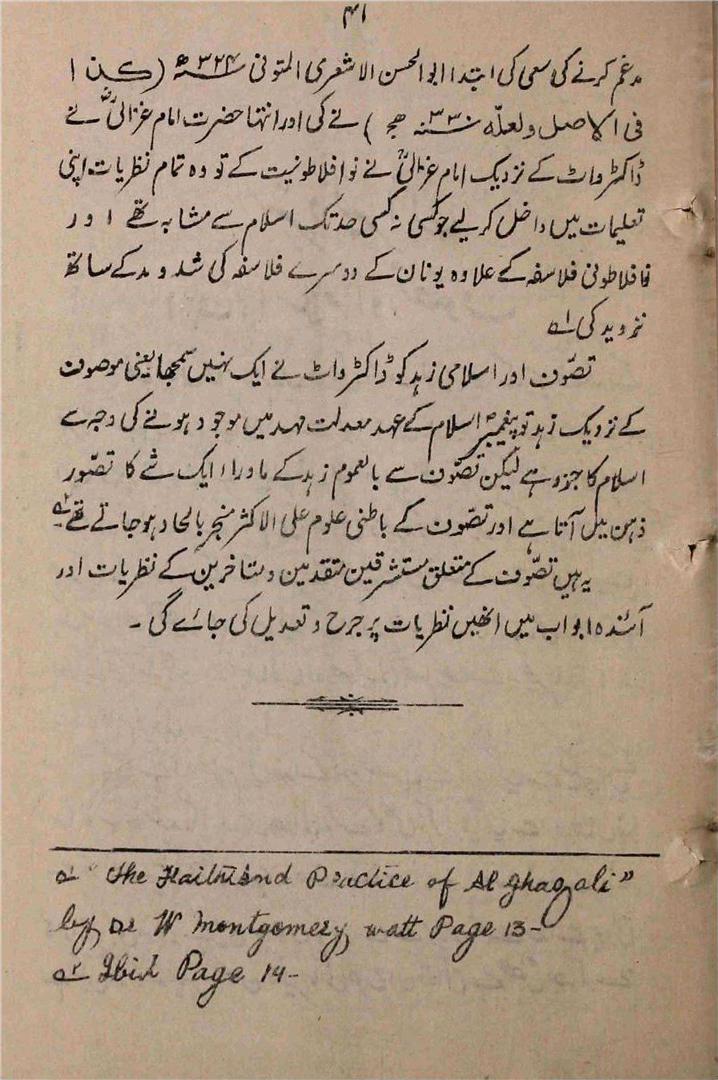 ۴۱
مدغم کرنے کی سعی کی ابتدا ابو الحسن الاشعری المتوفی ۳۲۴ھ (کذا
فی الاصل ولعلّہ ۳۳۰ سنہ ھج) نے کی اور انتہا حضرت امام غزالیؒ نے
ڈاکٹر واٹ کے نزدیک امام غزالیؒ نے نوافلاطونیت کے تو وہ تمام نظریات اپنی
تعلیمات میں داخل کر لیے جو کسی نہ کسی حد تک اسلام سے مشابہ تھے اور
فافلاطونی فلاسفہ کے علاوہ یونان کے دوسرے فلاسفہ کی شد و مد کے ساتھ
تردید کی ؎۱
تصّوف اور اسلامی زہد کو ڈاکٹر واٹ نے ایک نہیں سمجھا یعنی موصوف
کے نزدیک زہد تو پیغمبرؐ اسلام کے عہد معدلت مہد میں موجود ہونے کی وجہ سے
اسلام کا جزو ہے لیکن تصّوف سے بالعموم زہد کے ماورا ایک شے کا تصّور
ذہن میں آتا ہے اور تصّوف کے باطنی علوم علی الاکثر منجر بالحاد ہو جاتے تھے ؎۲
یہ ہیں تصّوف کے متعلق مستشرقین متقدمین و متاخرین کے نظریات اور
آئندہ ابواب میں انھیں نظریات پر جرح و تعدیل کی جائے گی ۔
؎۱ "The Faith and Practice of Al Ghazali"
by Dr W Montgomery watt Page 13-
؎۲ Ibid Page 14-